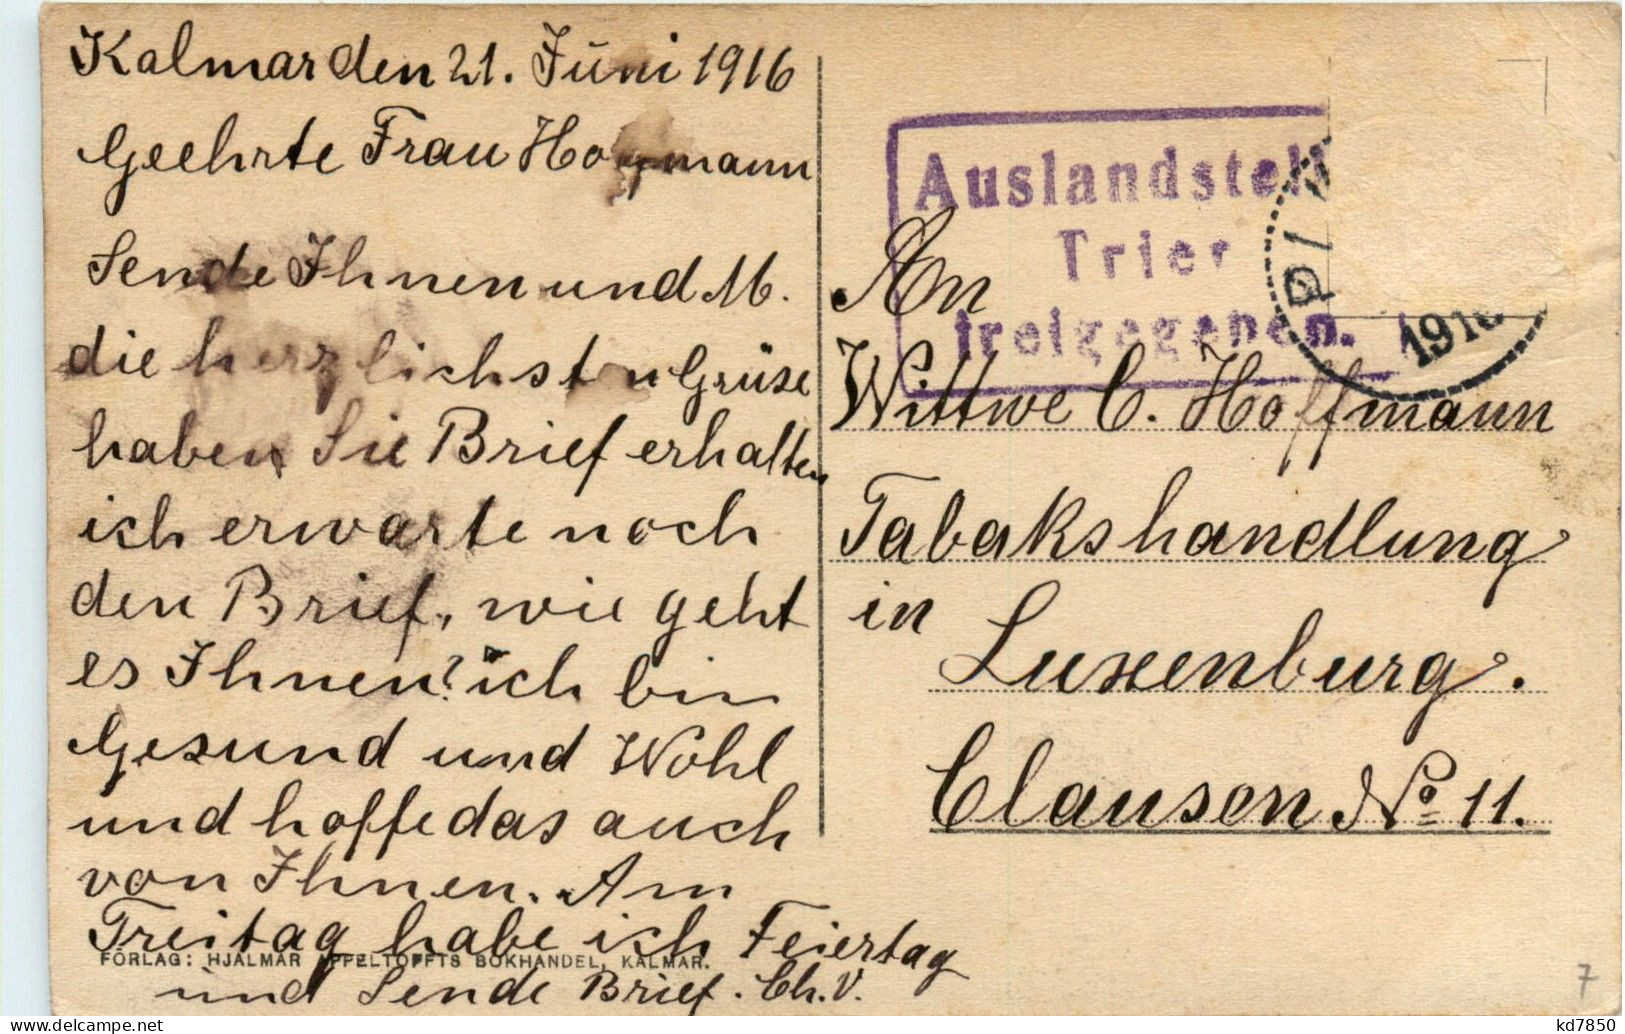 Kalmar den 21. Juni 1916
Geehrte Frau Hoffmann
Sende Ihnen und M.
die herzlichsten Grüse
haben Sie Brief erhalten
ich erwarte noch
den Brief, wie geht
es Ihnen? ich bin
Gesund und Wohl
und hoffe das auch
von Ihnen. Am
Freitag habe ich Feiertag
und Sende Brief. Ch. V.
FÖRLAG: HJALMAR APPELTOFFTS BOKHANDEL, KALMAR.
Auslandstell
Trier
freigegeben.
1916
An
Wittwe C. Hoffmann
Tabakshandlung
in
Luxenburg.
Clausen No 11.
7
kd7850